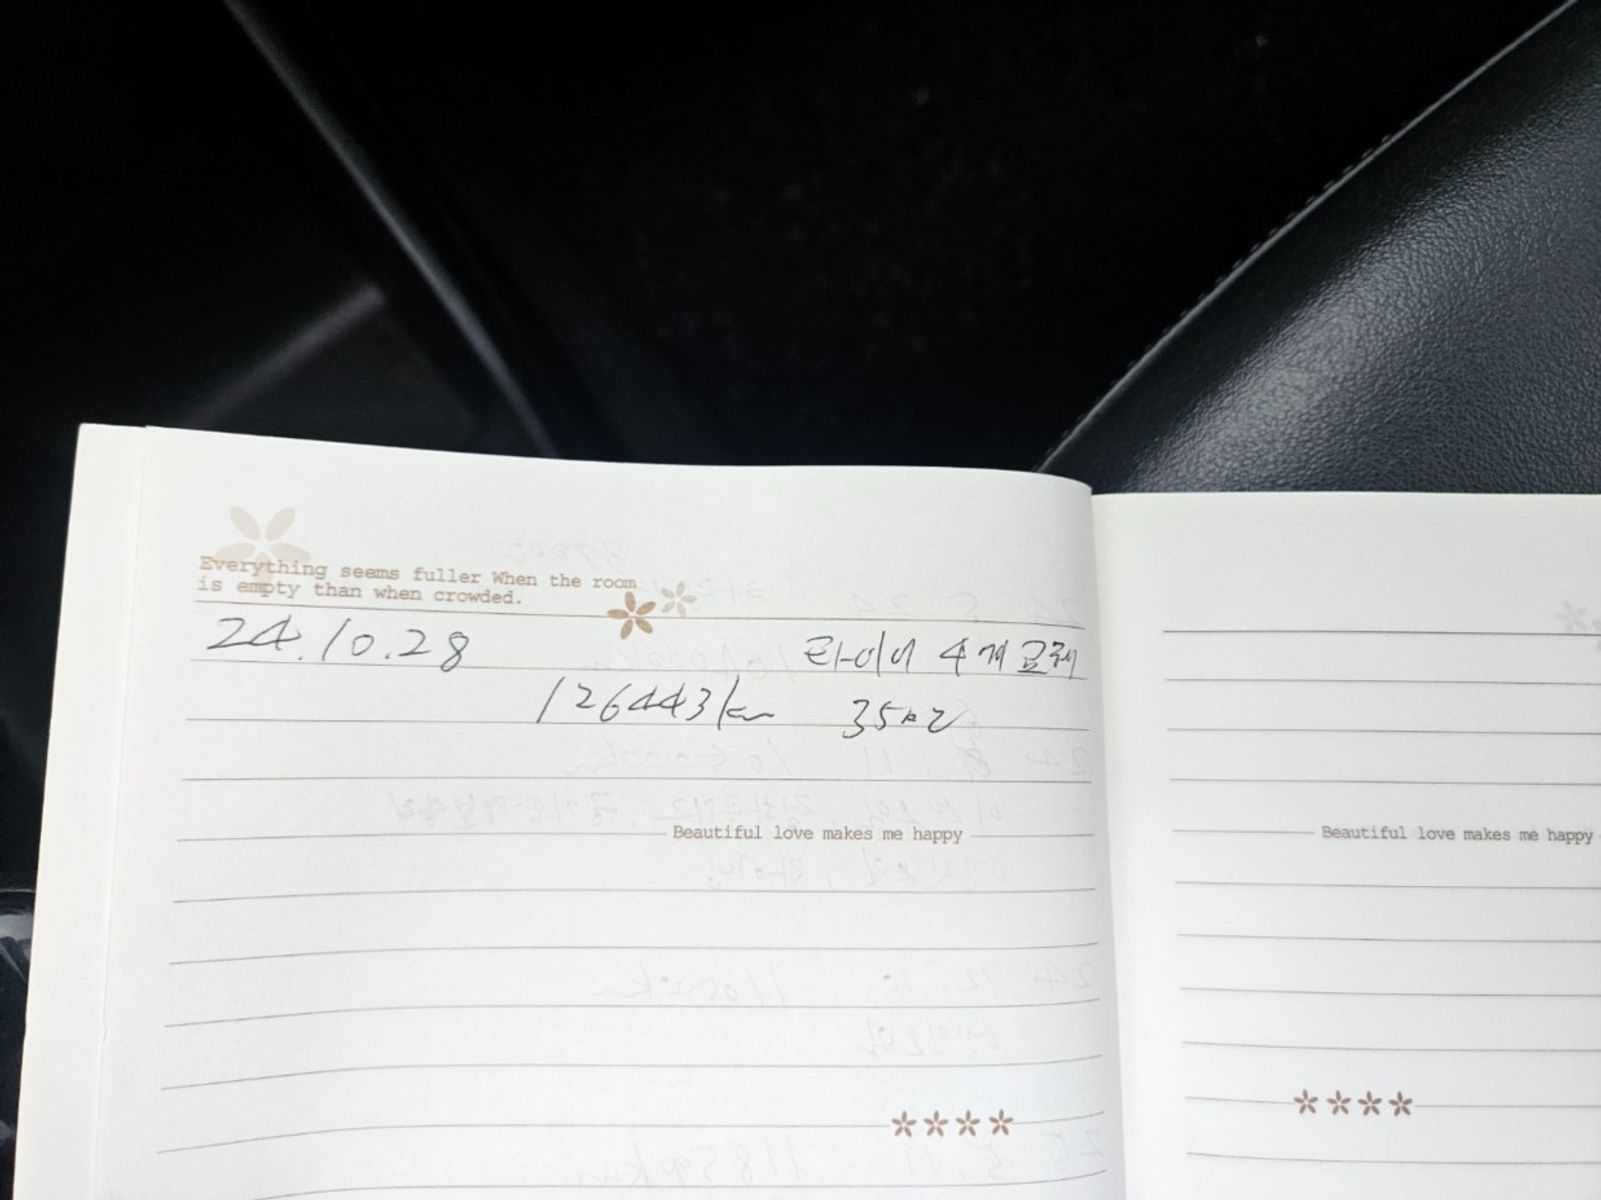 Everything seems fuller When the room
is empty than when crowded.
24.10.28 타이어 4개 교체
126443km 35만
Beautiful love makes me happy
Beautiful love makes me happy